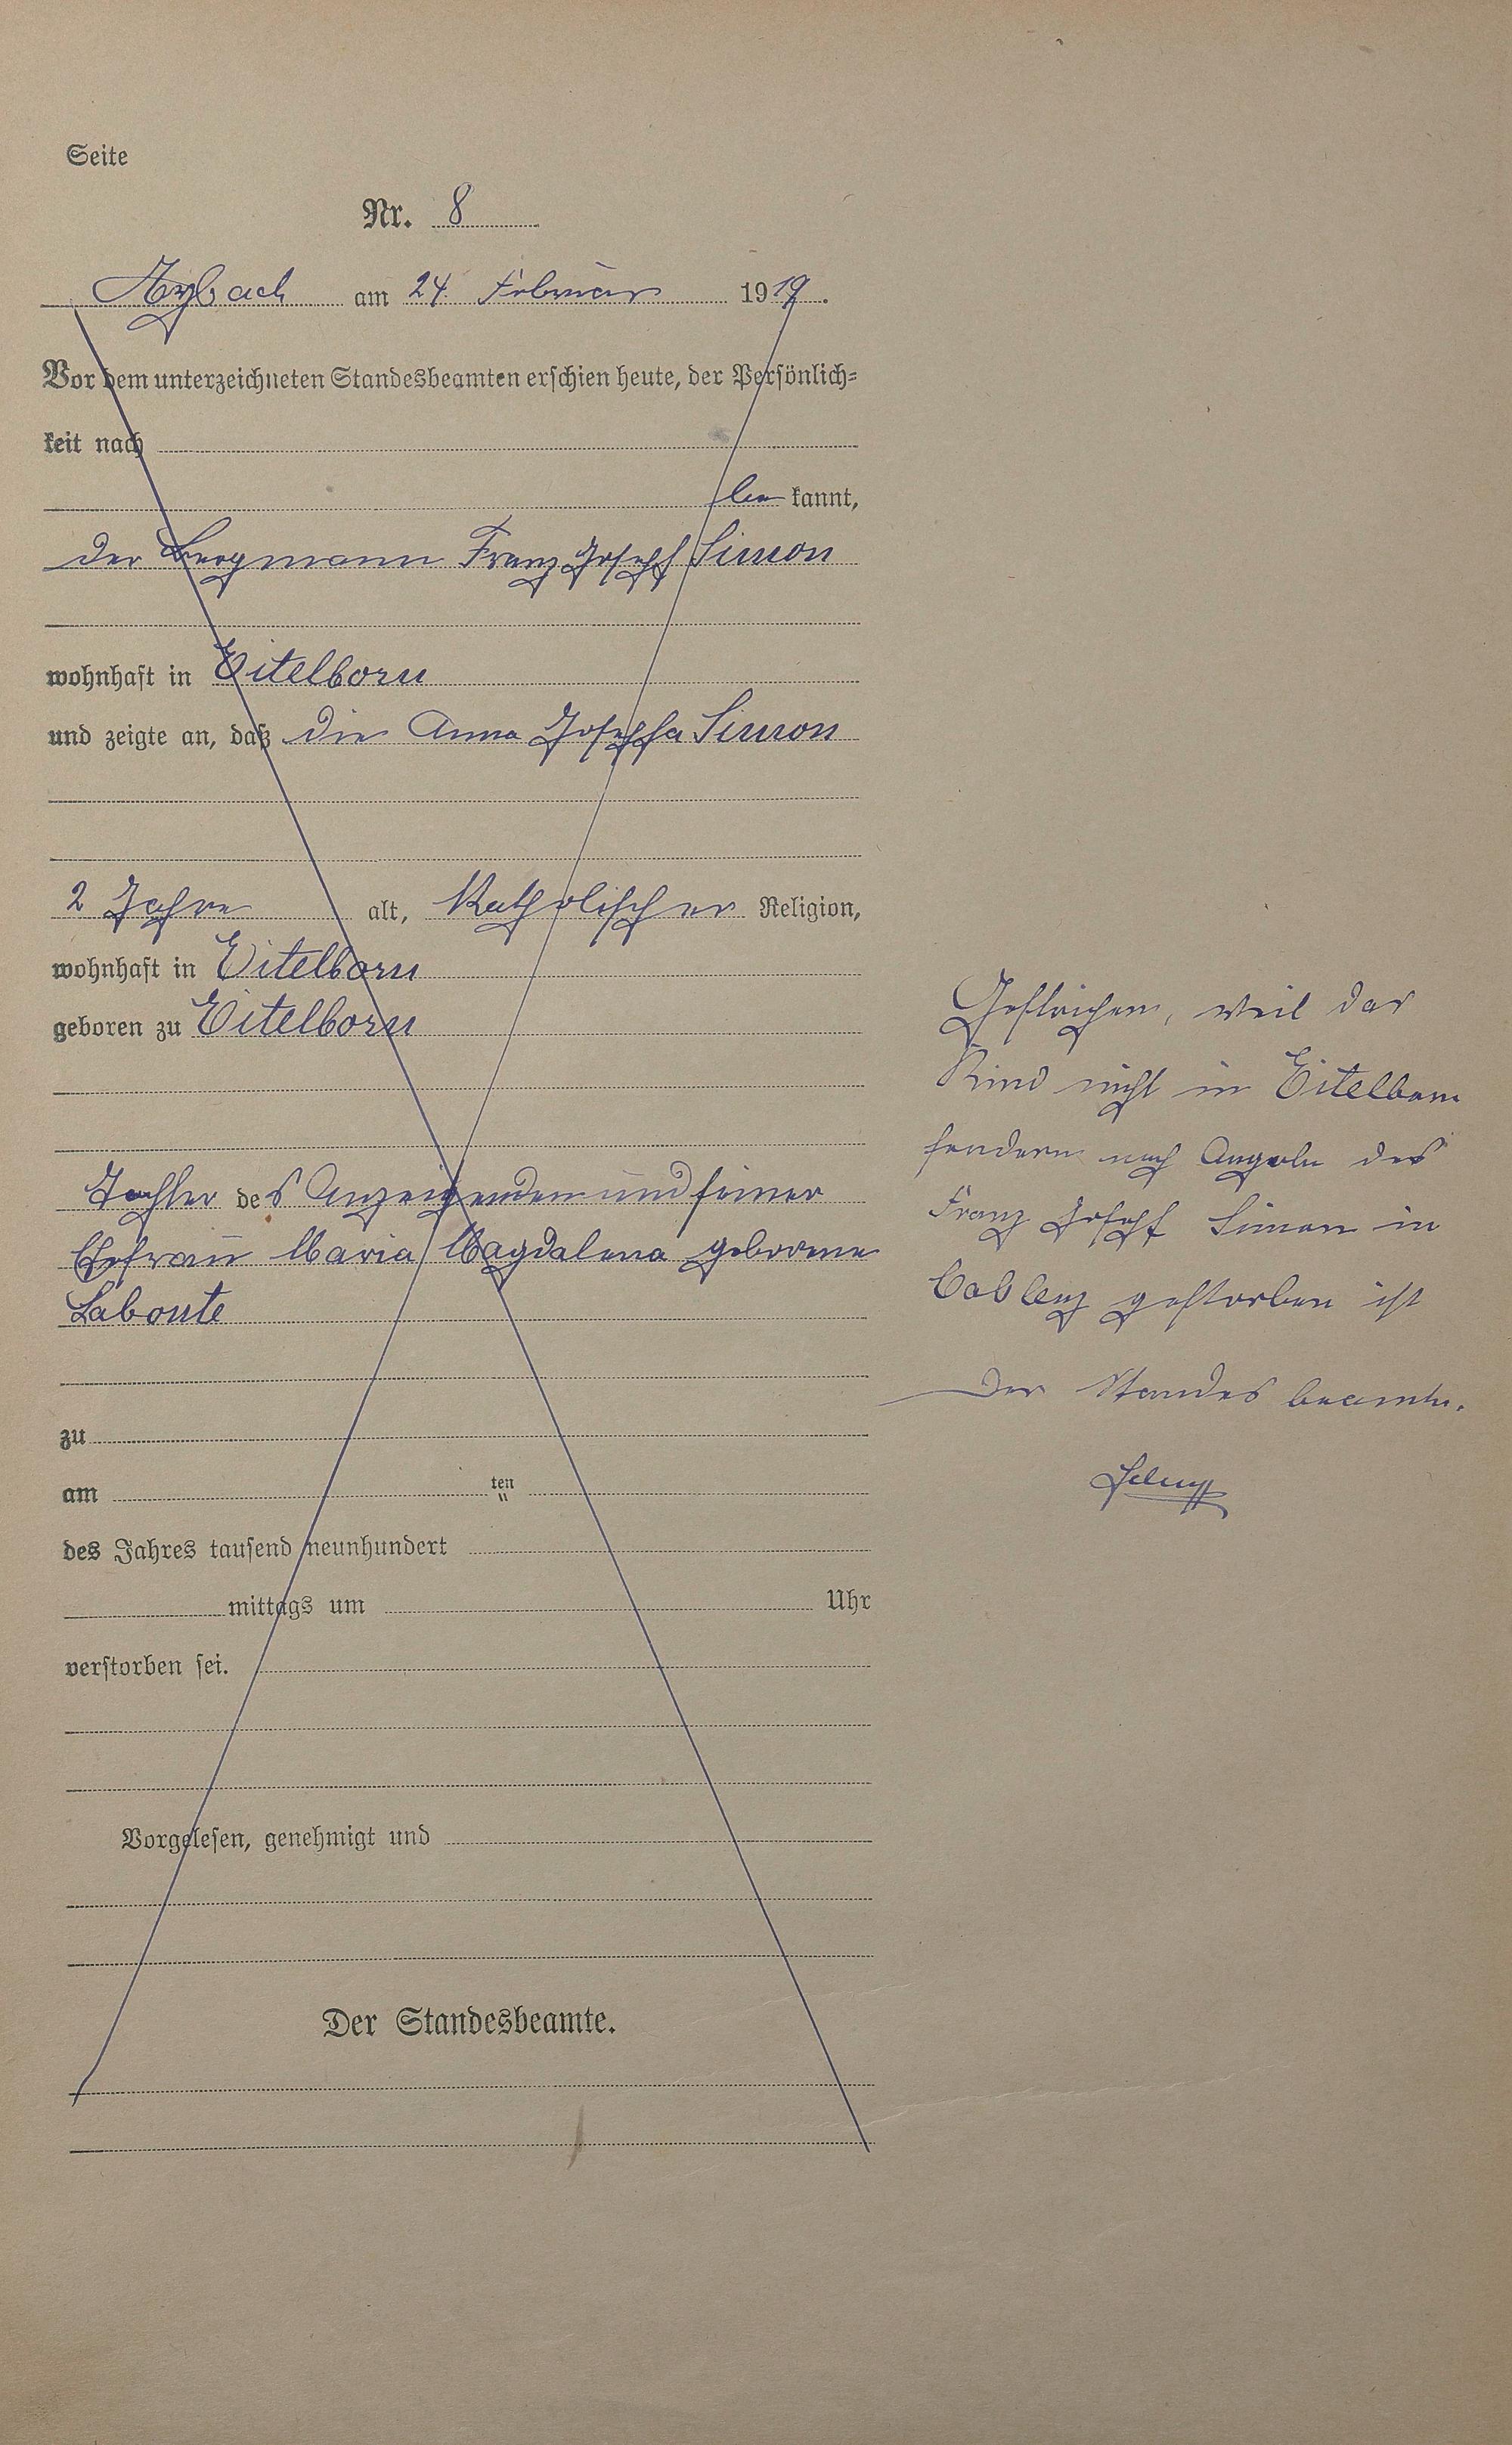 Seite
Nr. 8
Arzbach am 24. Februar 1919.
Vor dem unterzeichneten Standesbeamten erschien heute, der Persönlich-
keit nach
be kannt,
der Bergmann Franz Joseph Simon
wohnhaft in Eitelborn
und zeigte an, daß die Anna Josepha Simon
2 Jahre alt, Katholischer Religion,
wohnhaft in Eitelborn
geboren zu Eitelborn
Tochter des Anzeigenden und seiner
Ehefrau Maria Magdalena geborene
Labonte
zu
am ten
des Jahres tausend neunhundert
mittags um Uhr
verstorben sei.
Vorgelesen, genehmigt und
Der Standesbeamte.
Gestrichen, weil das
Kind nicht in Eitelborn
sondern nach Angabe des
Franz Joseph Simon in
Coblenz gestorben ist
Der Standesbeamte.